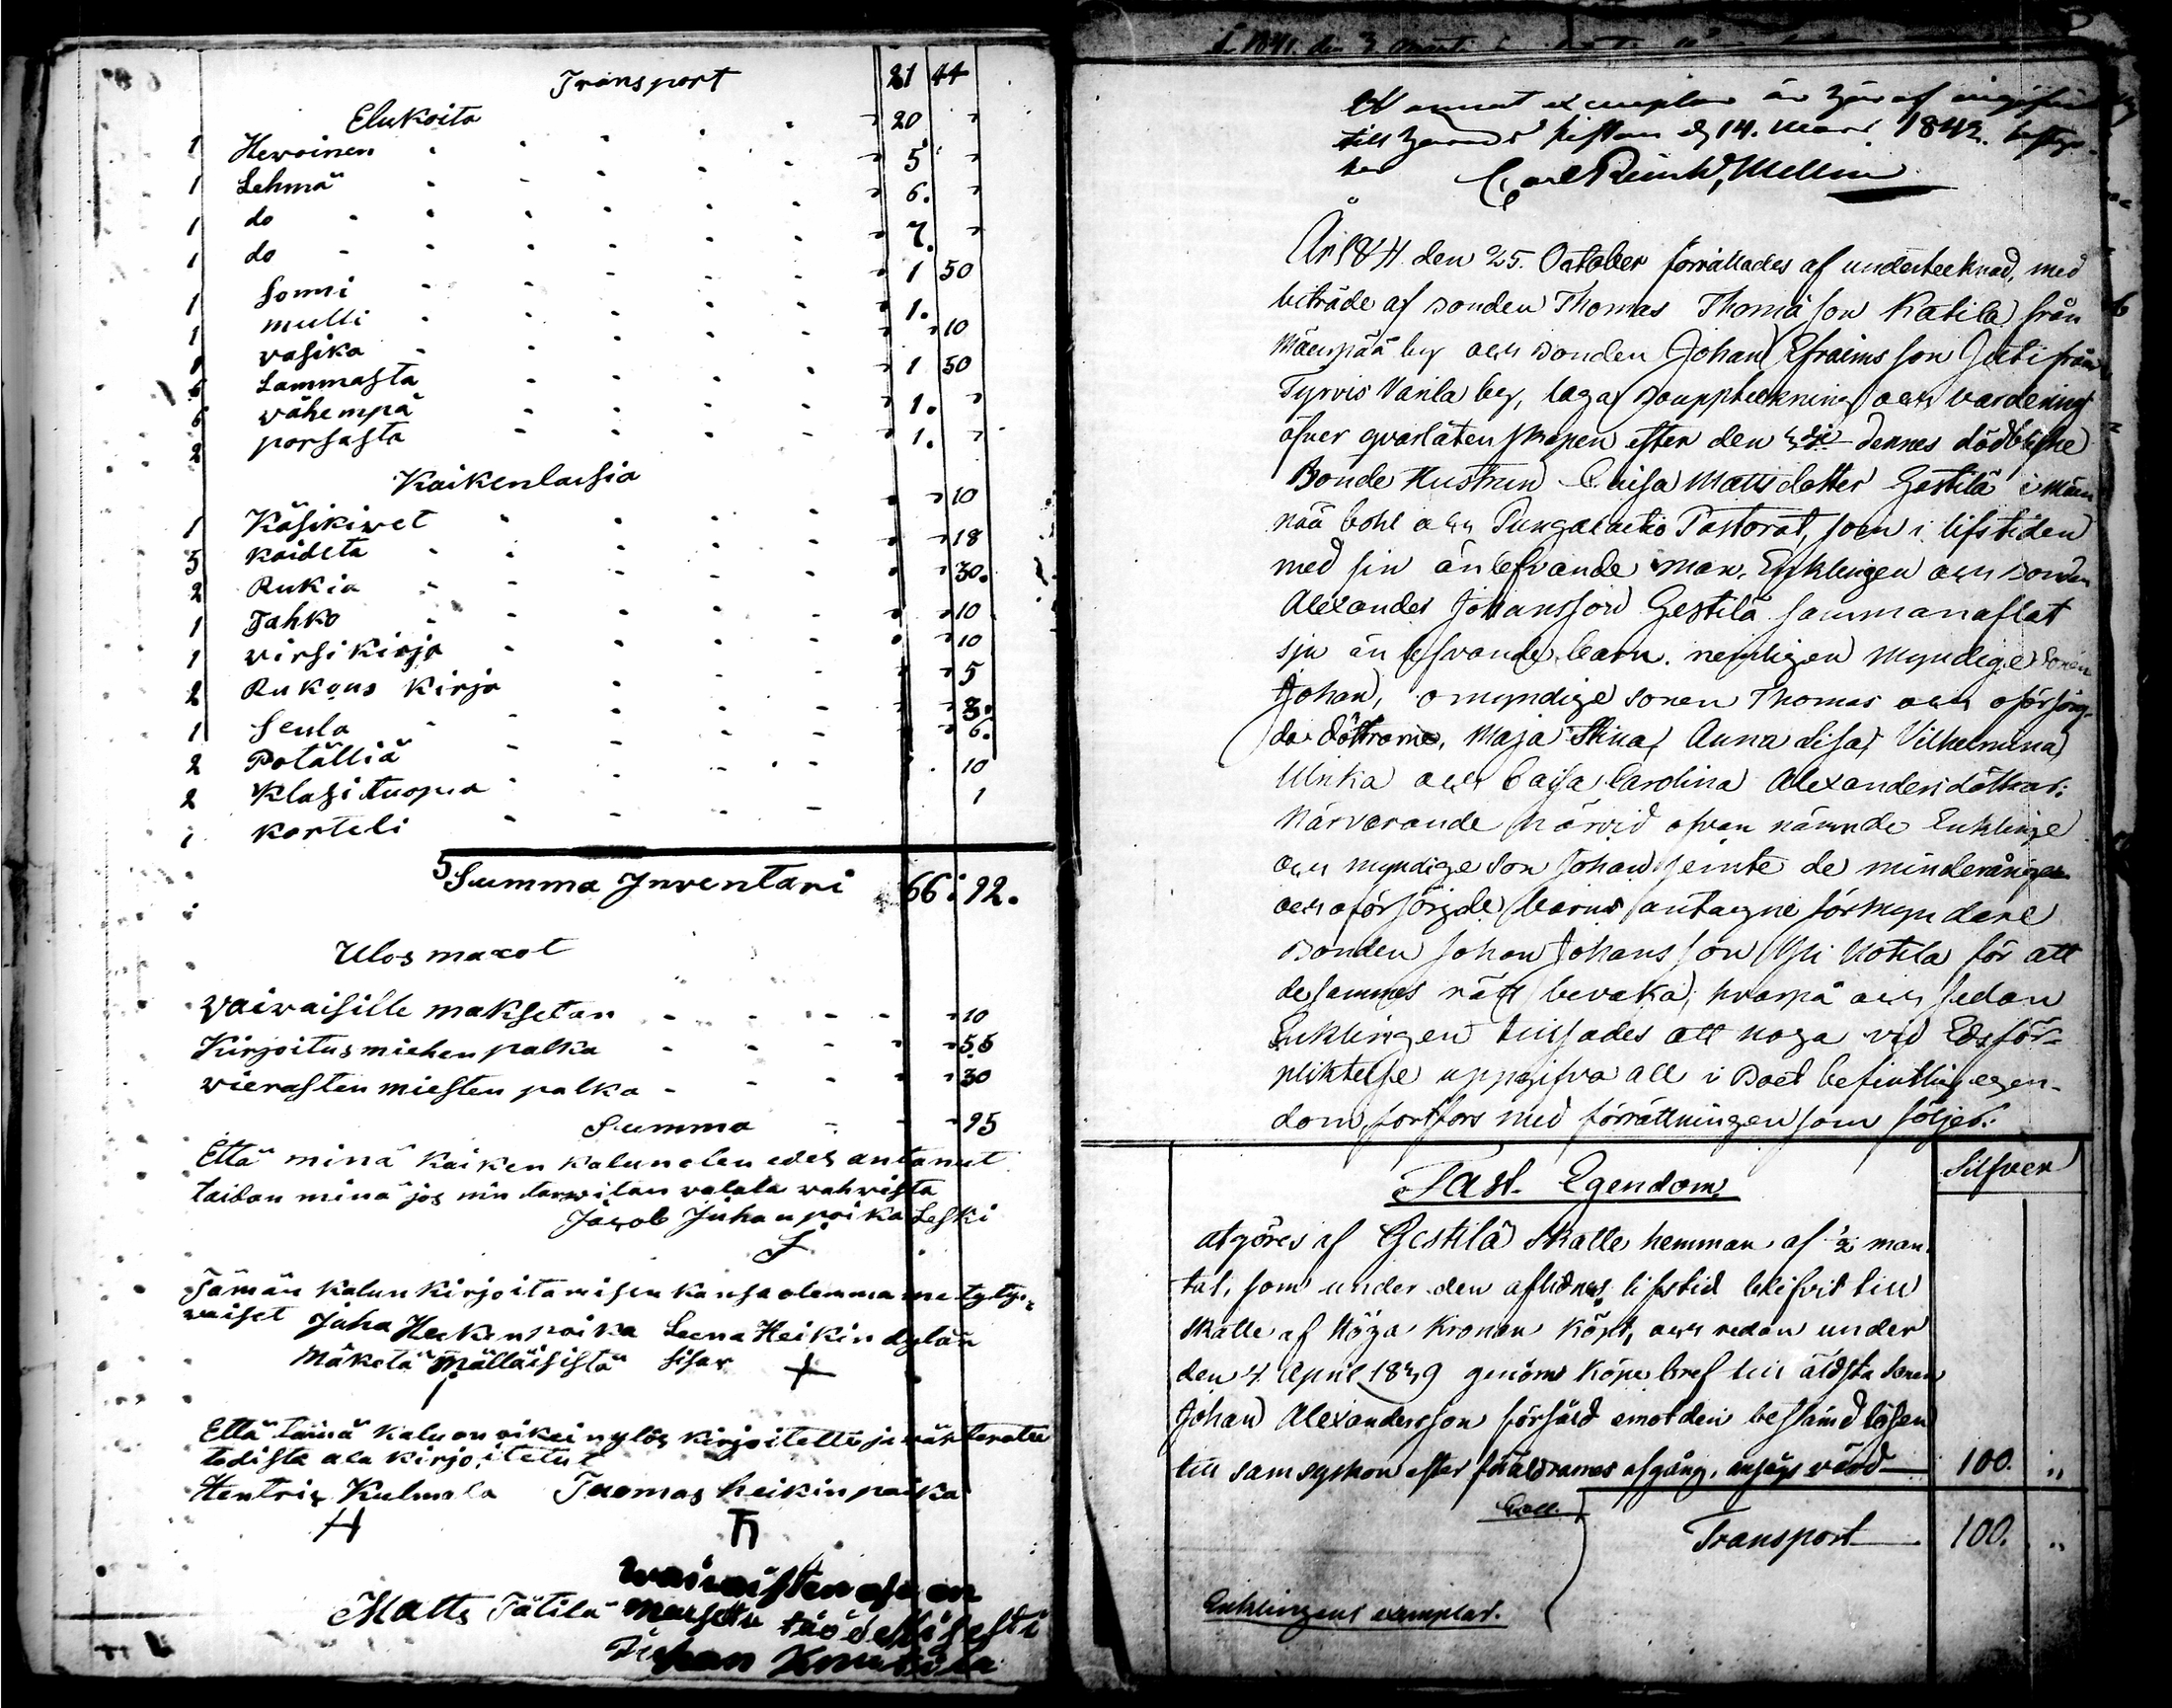 Transport 21 44
Elukoita
1 Hevoinen 20
1 Lehmä 5
1 do 6.
1 do 7.
1 Sonni 1 50
1 mulli 1.
1 vasika 10
5 Lammasta 1 50
6 vähempä 1.
2 porsasta 1.
Kaikenlaisia
1 Käsikivet 10
5 kaideta 18
2 Rukia 30.
1 Tahko 10
1 virsikirja 10
2 Rukous kirja 5
1 Seula 3.
2 Potälliä 6.
2 Klasituopia 10
1 korteli 1
Summa Inventari 66: 92.
Ulos maxot
vaivaisille maksetan 10
Kirjoitus miehen palka 55
vierasten miesten palka 30
Summa 95
Että minä kaiken kalun olen edes antanut
taidan minä jos nin tarvitan valala vahvista
Jacob Juhan poika Leski
Tämän kalun kirjoitamisen kansa olemma me tyty-
väiset Juha Heikin poika Leena Heikin dytär
Mäkelä Mälläisistä sisar
Että tämä kalu on oikein ylös kirjoitettu ja
todista ala kirjoitetut
Hentrik Kulmala Tuomas heikin poika
H TH
vaivaisten osa on
Matts Tätilä maksettu
Juhan
1841 den 3 Mars
Ett annat exemplar är
till 14. Mars 1842.
Carl Reinh. Mellin
År 1841 den 25. October förrättades af undertecknad, med
biträde af bonden Thomas Thomasson Katila från
Mäenpää by och bonden Johan Efraimsson från
Tyrvis Vanla by, laga bouppteckning och vardering
öfver qvarlåtenskapen efter den dennes dödblefne
Bonde Hustrun Caisa Mattsdotter Gestilä i Mäen
pää bohl och Pungalaitio Pastorat, som i lifstiden
med sin än lefvande man, Enklingen och Bonden
Alexander Johansson Gestilä sammanaflat
sju än lefvande barn, nemligen myndige Sonen
Johan, omyndige sonen Thomas och oförsörg-
da döttrarne, Maja Stina, Anna Lisa, Vilhelmina,
Ulrika och Caisa Carolina Alexandersdöttrar.
Närvarande härvid ofvan nämnde Enklinge
och myndige son Johan jemte de minderåriges
och oförsörgde barns antagne förmyndare
Bonden Johan Johansson Yli Kotila för att
desammes rätt bevaka; hvarpå och sedan
Enklingen tillsades att noga vid Edsför-
pliktelse uppgifva all i Boet befintlig egen-
dom, fortfors med förrättningen som följer:
Fast Egendom Silfver
utgöres af Gestilä Skatte hemman af ½ man-
tal, som under den aflidnes lifstid blifvit till
skatte af Höga Kronan köpt, och redan under
den 4 April 1839 genom köpebref till äldsta sonen
Johan Alexandersson försåld emot den bestämd lösen
till samsyskon efter föräldrarnes afgång, ansågs värd 100. "
Transport 100. "
Enklingens exemplar.